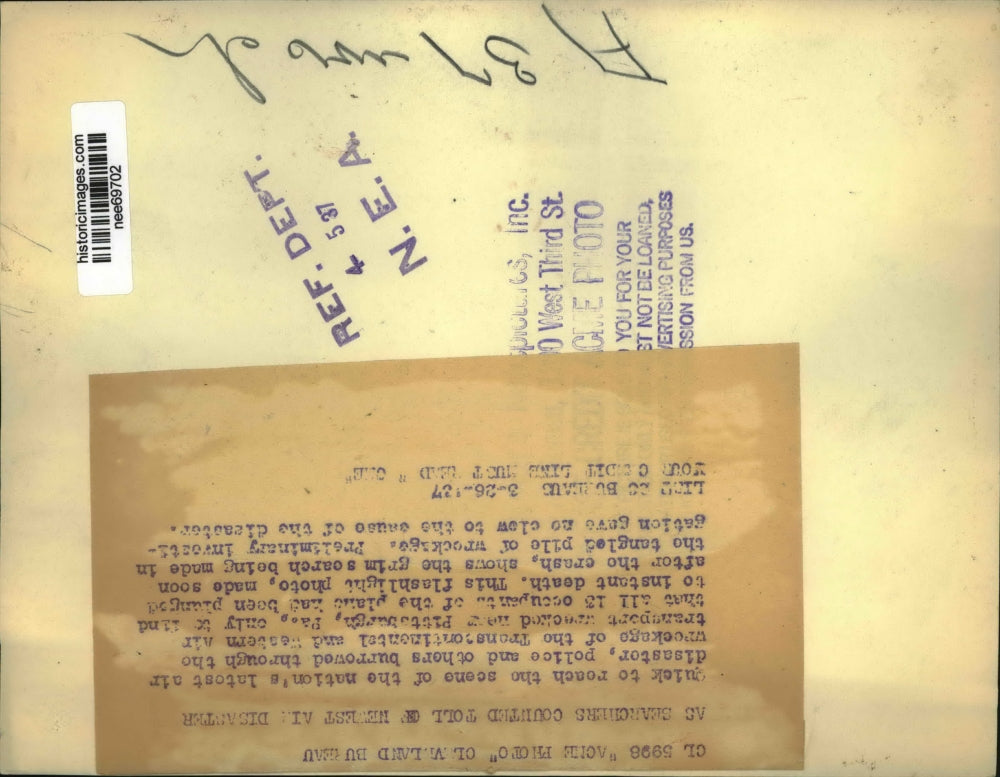 A 37
historicimages.com
nee69702
REF. DEPT.
4 5 37
N. E. A.
Inc.
West Third St.
PHOTO
YOU FOR YOUR
NOT BE LOANED,
PURPOSES
FROM US.
CL 5998 "ACME PHOTO" CLEVELAND BUREAU
AS SEARCHERS COUNTED TOLL OF NEWEST AIR DISASTER
Quick to reach the scene of the nation's latest air
disaster, police and others burrowed through the
wreckage of the Transcontinental and Western Air
transport wrecked near Pittsburgh, Pa., only to find
that all 13 occupants of the plane had been plunged
to instant death. This flashlight photo, made soon
after the crash, shows the grim search being made in
the tangled pile of wreckage. Preliminary investi-
gation gave no clew to the cause of the disaster.
BUREAUS 3-26-'37
YOUR CREDIT LINE MUST READ "